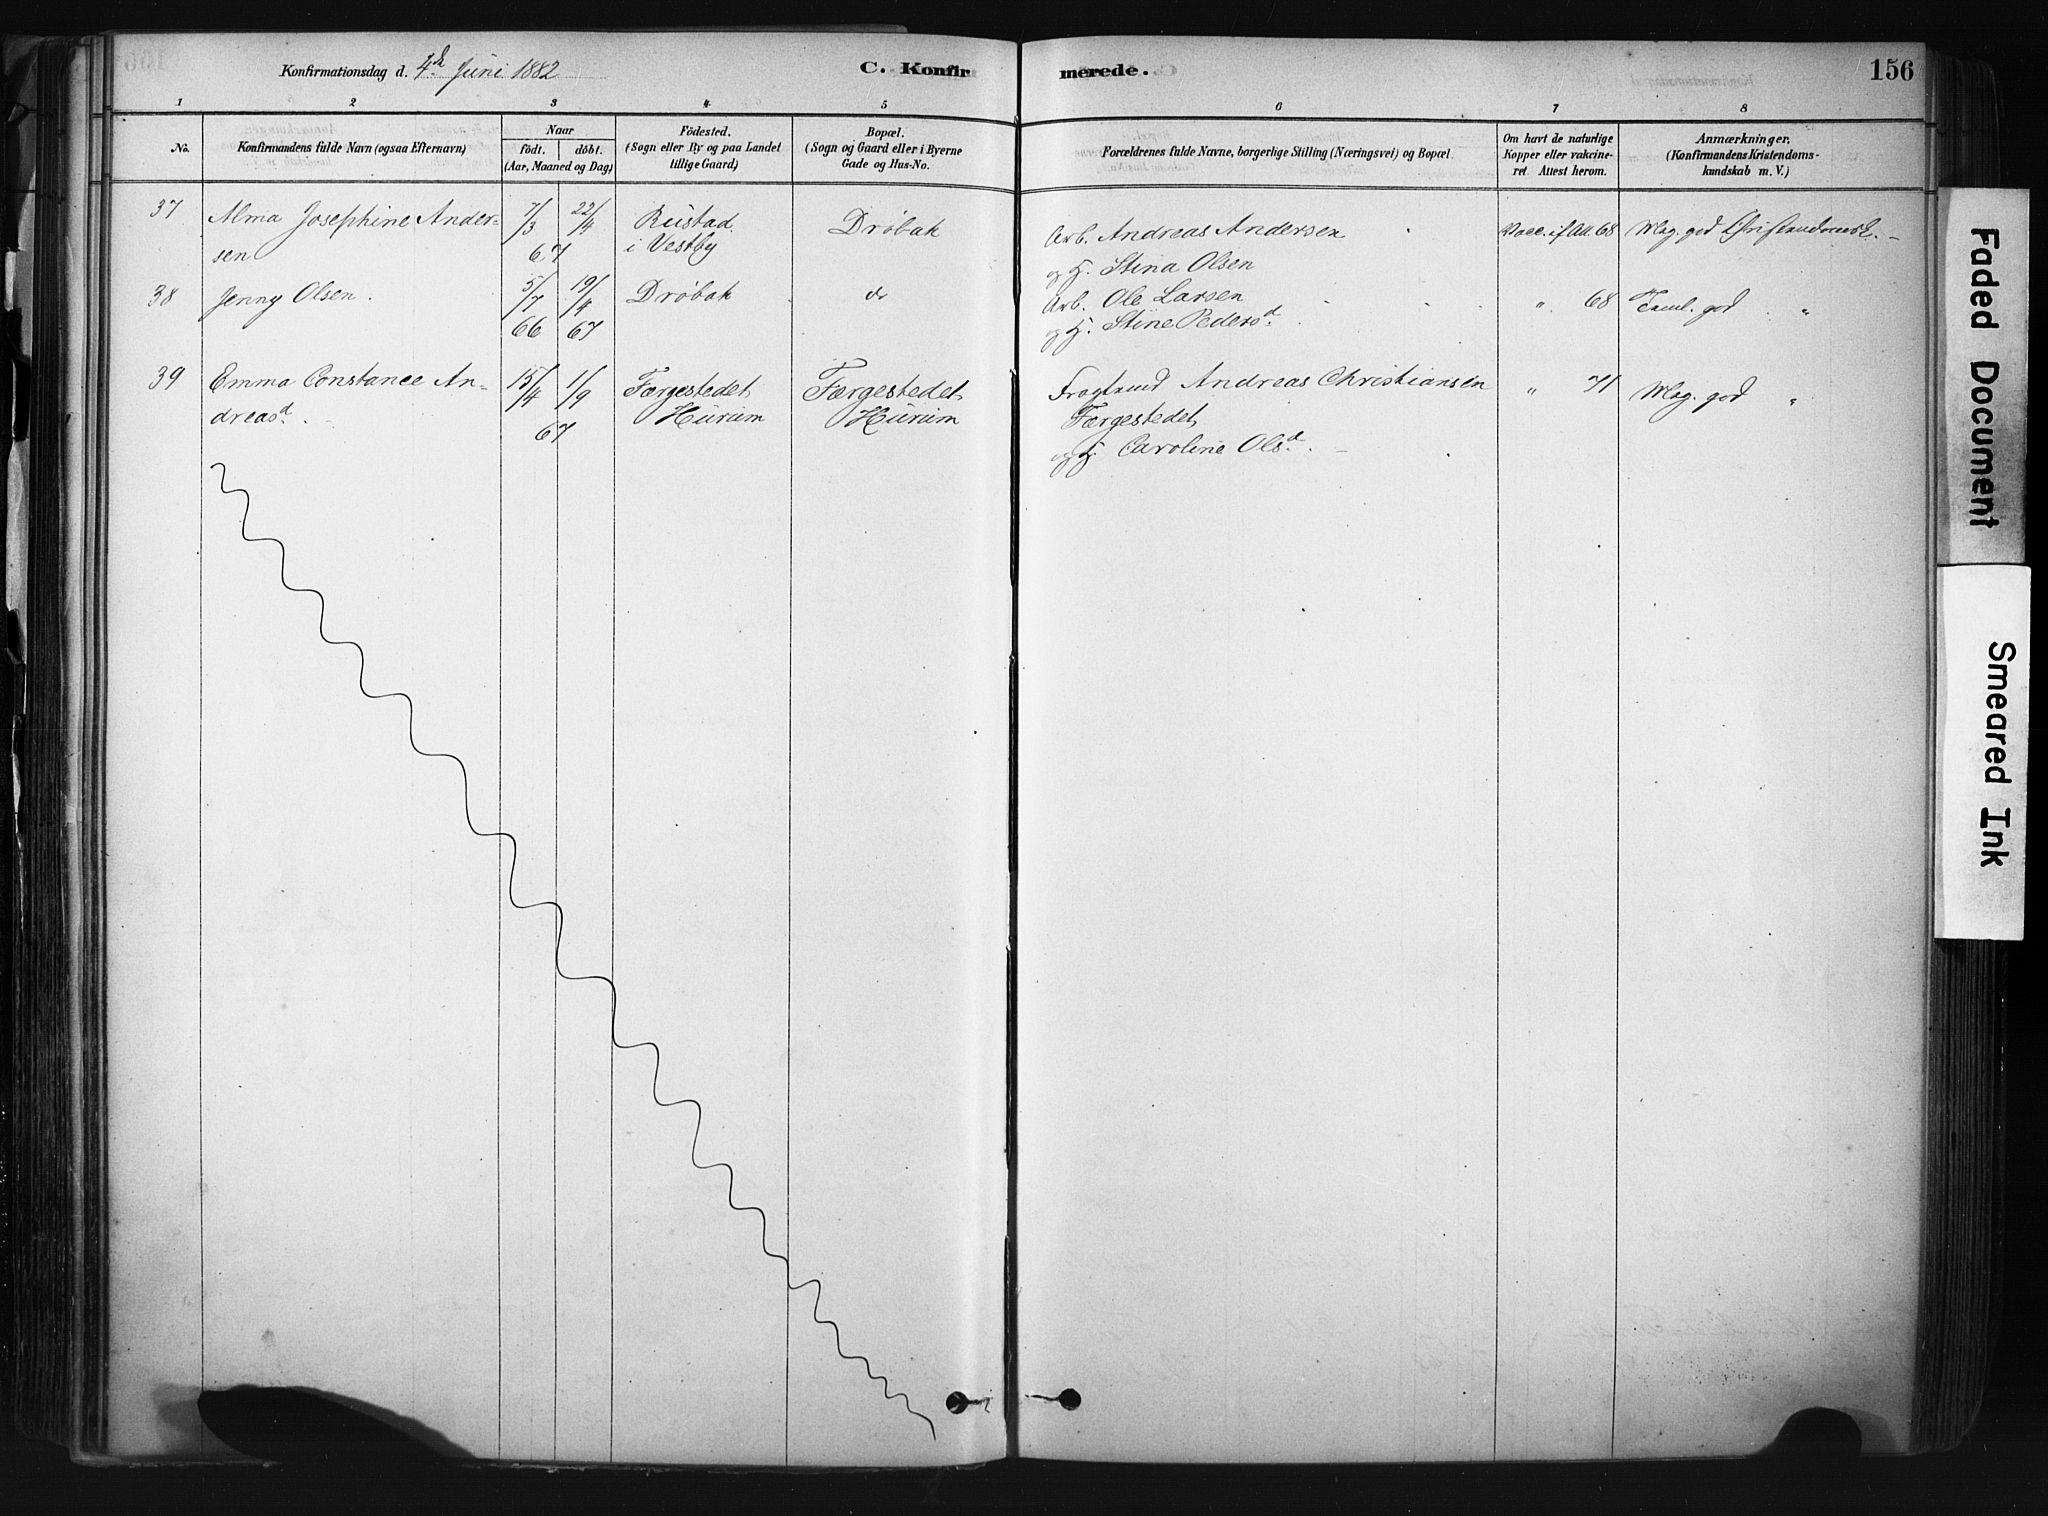 Konfirmationsdag d. 4de Juni 1882
C. Konfirmerede.
156
1 2 3 4 5 6 7 8
No.
Konfirmandens fulde Navn (ogsaa Efternavn)
Naar
født. døbt.
(Aar, Maaned og Dag)
Födested.
(Sogn eller By og paa Landet
tillige Gaard)
Bopæl.
(Sogn og Gaard eller i Byerne
Gade og Hus-No.
Forældrenes fulde Navne, borgerlige Stilling (Næringsvei) og Bopæl
Om havt de naturlige
Kopper eller vakcine-
ret. Attest herom.
Anmærkninger.
(Konfirmandens Kristendoms-
kundskab m. V.)
37 Alma Josephine Ander- 7/3 22/4 Rustad Drøbak Arb. Andreas Andersen Vacc. if. Att. 68 Mag. god
sen 67 i Vestby og H. Stina Olsen
38 Jenny Olsen. 5/7 19/4 Drøbak do Arb. Ole Larsen " 68 Taml. god "
66 67 og H. Stine Pedersd.
39 Emma Constance An- 15/4 1/9 Færgestedet Færgestedet Andreas Christiansen " 71 Mag. god "
dreasd. 67 Hurum Hurum Færgestedet
og H. Caroline Olsd.
Faded Document
Smeared Ink